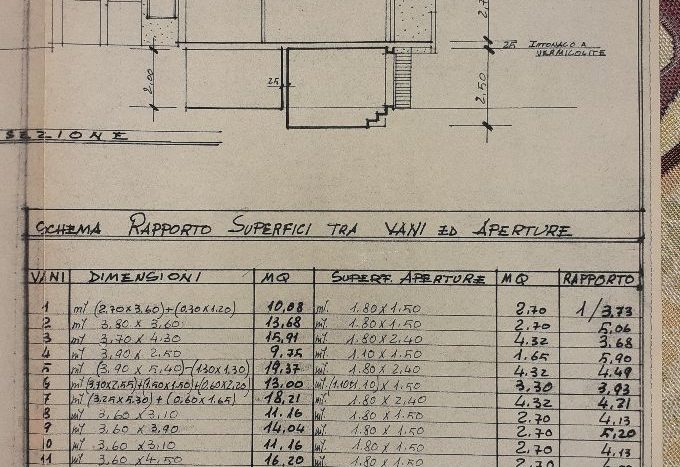 2.7
2.00
25
25
INTONACO A
VERMICOLITE
2.50
SEZIONE
SCHEMA RAPPORTO SUPERFICI TRA VANI ED APERTURE
VANI DIMENSIONI MQ SUPERF. APERTURE MQ RAPPORTO
1 mt (2.70x3.60)+(0.30x1.20) 10,08 mt. 1.80 x 1.50 2.70 1/3,73
2 mt 3.80 x 3.60 13,68 mt. 1.80 x 1.50 2.70 5,06
3 mt 3.70 x 4.30 15,91 mt. 1.80 x 2.40 4.32 3,68
4 mt 3.90 x 2.50 9,75 mt. 1.10 x 1.50 1.65 5,90
5 mt (3.90 x 5.40)-(1.30x1.30) 19,37 mt. 1.80 x 2.40 4.32 4,49
6 +(1.50x1.50)+(0.60x2.20) 13,00 x 1.50 3.30 3,93
7 mt (3.25x5.30)+(0.60x1.65) 18,21 mt. 1.80 x 2.40 4.32 4,21
8 mt 3.60 x 3.10 11,16 mt. 1.80 x 1.50 2.70 4,13
9 mt 3.60 x 3.90 14,04 mt. 1.80 x 1.50 2.70 5,20
10 mt 3.60 x 3.10 11,16 mt. 1.80 x 1.50 2.70 4,13
11 mt 3.60 x 4.50 16,20 mt. 1.80 x 1.50 2.70